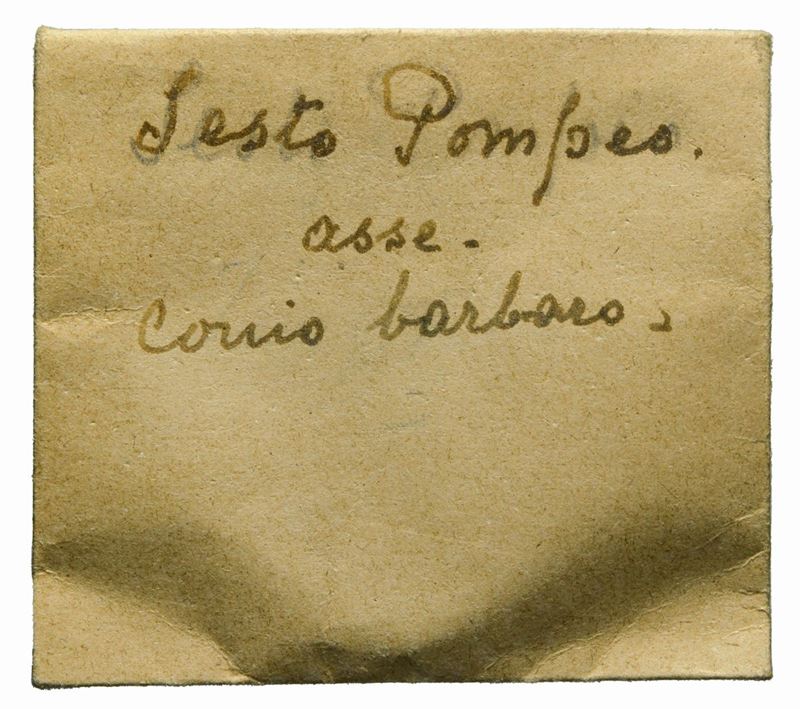 Sesto Pompeo.
asse.
Conio barbaro.